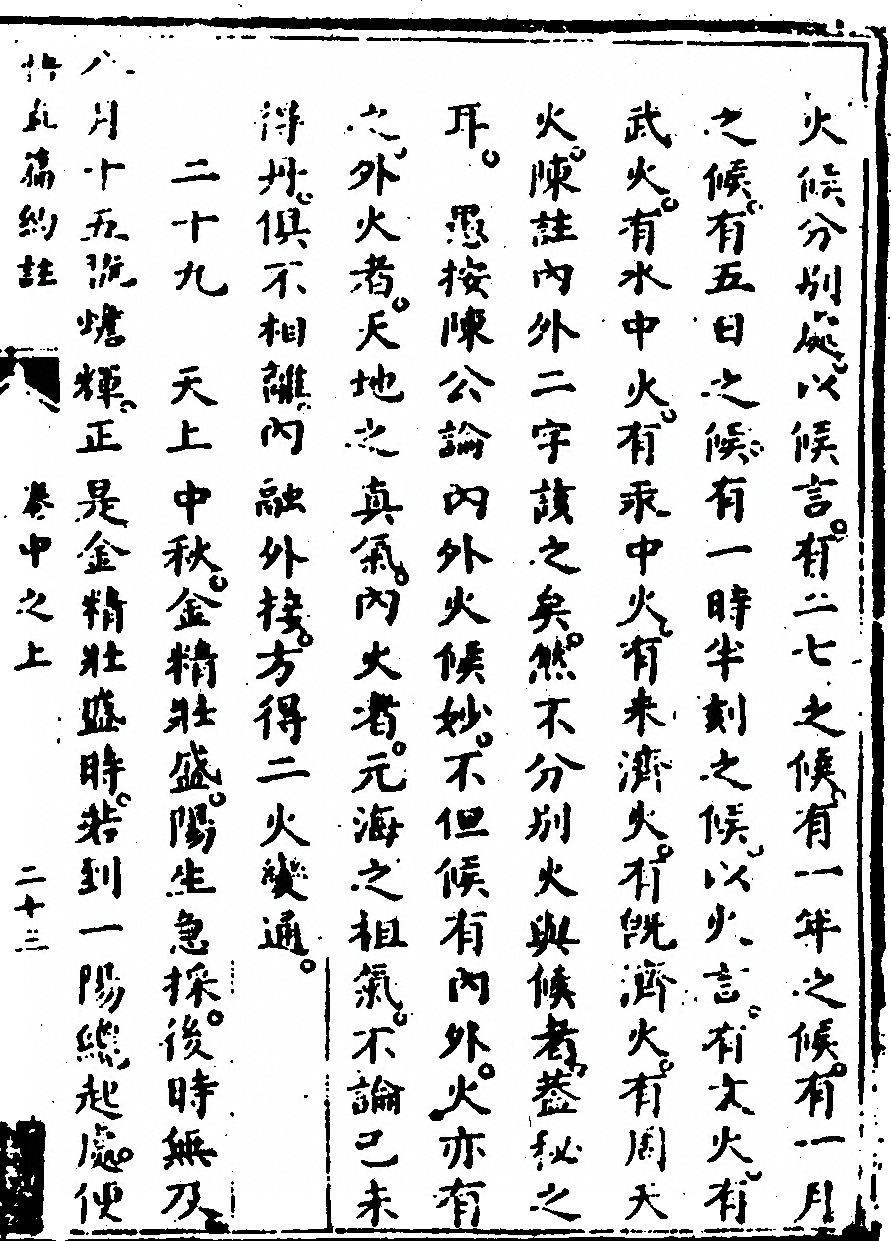 火候分別處以候言有二七之候有一年之候有一月
之候有五日之候有一時半刻之候以火言有文火有
武火有水中火有汞中火有未濟火有既濟火有周天
火陳註內外二字該之矣然不分別火與候者蓋秘之
耳　愚按陳公論內外火候妙不但候有內外火亦有
之外火者天地之真氣內火者元海之祖氣不論己未
得丹俱不相離內融外接方得二火變通
二十九　天上中秋金精壯盛陽生急採後時無及
八月十五翫蟾輝正是金精壯盛時若到一陽纔起處便
悟真篇約註　卷中之上　二十三